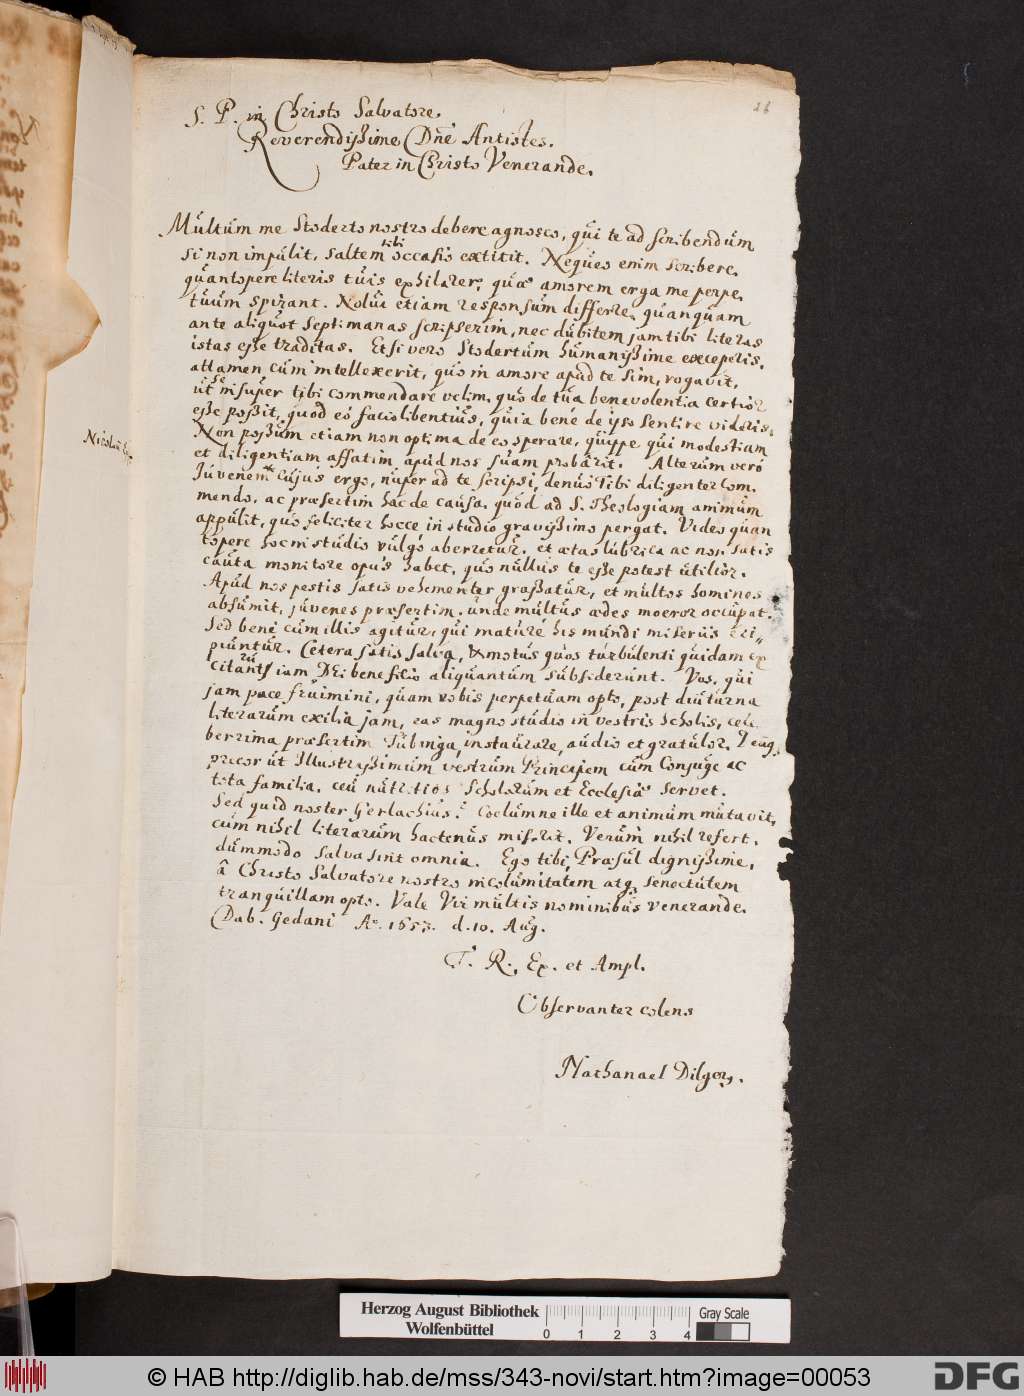 26
S. P. in Christo Salvatore.
Reverendißime Dñe Antistes.
Pater in Christo Venerande.
Multum me Stoderto nostro debere agnosco, qui te ad scribendum
si non impulit, saltem tibi occasio extitit. Nequeo enim scribere,
quantopere literis tuis exhilarer, quæ amorem erga me perpe,
tuum spirant. Nolui etiam responsum differre, quanquam
ante aliquot septimanas scripserim, nec dubitem jam tibi literas
istas esse traditas. Etsi vero Stodertum humanißime exceperis,
attamen cum intellexerit, quo in amore apud te sim, rogavit,
ut se insuper tibi commendare velim, quo de tua benevolentia certior
esse poßit, quod eo facio libentius, quia bene de ipso sentire videris.
Non poßum etiam non optima de eo sperare, quippe qui modestiam
et diligentiam affatim apud nos suam probârit. Alterum verò
Juvenem * cujus ergo, nuper ad te scripsi, denuo Tibi diligenter com,
mendo, ac præsertim hac de causa, quod ad S. Theologiam animum
appulit, quo feliciter hocce in studio gravißimo pergat. Vides quan
topere hoc in studio vulgò aberretur, et ætas lubrica ac non satis
cauta monitore opus habet, quo nullus te esse potest utilior.
Apud nos pestis satis vehementer graßatur, et multos homines
absumit, juvenes præsertim, unde multus ædes moeror occupat.
Sed bene cum illis agitur, qui maturè his mundi miseriis eri„
piuntur. Cetera satis salva, & motus quos turbulenti quidam ex
citarunt, jam DEi beneficio aliquantum subsiderunt. Vos, qui
jam pace fruimini, quam vobis perpetuam opto, post diuturna
literarum exilia jam, eas magno studio in vestris scholis, cele
berrima præsertim Tubinga, instaurare, audio et gratulor, Deumq,
precor ut Illustrißimum vestrum Principem cum Conjuge ac
tota familia, ceu nutritios Scholarum et Ecclesiæ servet.
Sed quid noster Gerlachius? Coelumne ille et animum mutavit,
cum nihil literarum hactenus miserit. Verum nihil refert,
dummodo salva sint omnia. Ego tibi, Præsul dignißime,
â Christo Salvatore nostro incolumitatem atq, senectutem
tranquillam opto. Vale Vir multis nominibus venerande.
Dab. Gedani Aº. 1653. d. 10. Aug.
T. R., Ex. et Ampl.
Observanter colens
Nathanael Dilger.
Herzog August Bibliothek
Wolfenbüttel
0 1 2 3 4
Gray Scale
© HAB http://diglib.hab.de/mss/343-novi/start.htm?image=00053
DFG